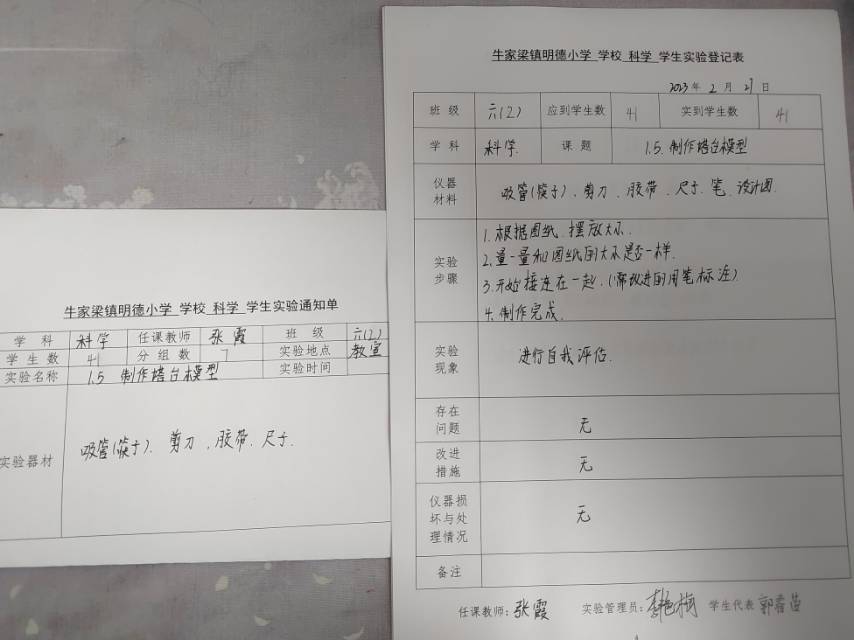 牛家梁镇明德小学 学校 科学 学生实验通知单
学科 科学 任课教师 张霞 班级 六(2)
学生数 41 分组数 7 实验地点 教室
实验名称 1.5 制作塔台模型 实验时间
实验器材 吸管(筷子)、剪刀、胶带、尺子.
牛家梁镇明德小学 学校 科学 学生实验登记表
2023年2月27日
班级 六(2) 应到学生数 41 实到学生数 41
学科 科学. 课题 1.5. 制作塔台模型
仪器
材料
吸管(筷子)、剪刀、胶带、尺子、笔、设计图.
实验
步骤
1.根据图纸、摆放大小.
2.量一量和图纸的大小是否一样.
3.开始接连在一起.(需改进的用笔标注)
4.制作完成.
实验
现象
进行自我评估.
存在
问题
无
改进
措施
无
仪器损
坏与处
理情况
无
备注
任课教师:张霞 实验管理员: 学生代表